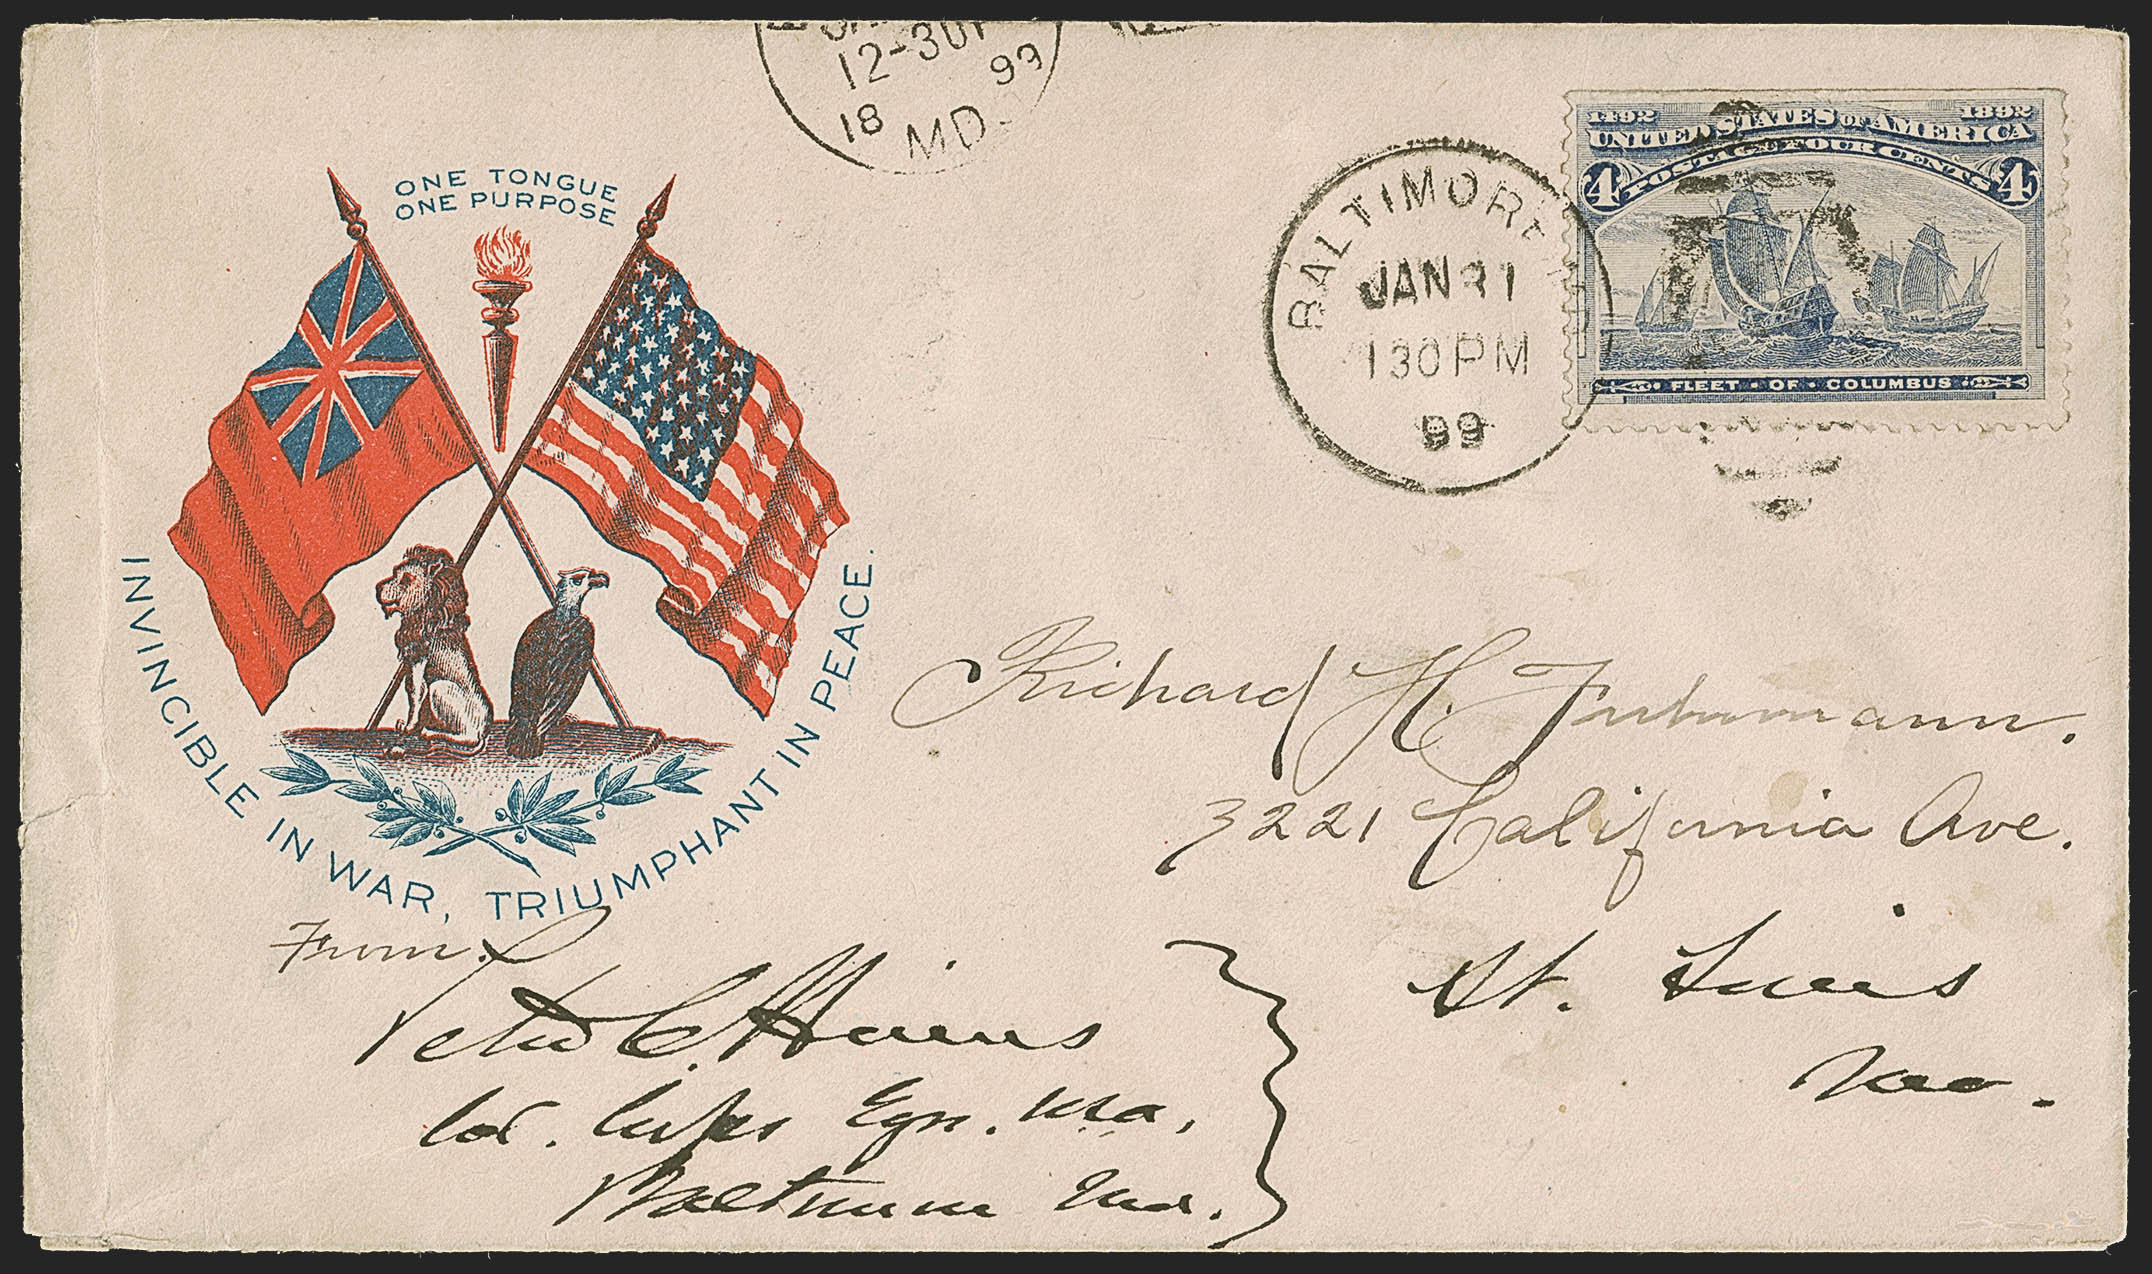 12-30P
18 MD. 99
ONE TONGUE
ONE PURPOSE
INVINCIBLE IN WAR, TRIUMPHANT IN PEACE.
BALTIMORE MD
JAN 31
130 PM
99
1492 1892
UNITED STATES OF AMERICA
4 POSTAGE FOUR CENTS 4
FLEET · OF · COLUMBUS
Richard H. Fuhrmann.
3221 California Ave.
St. Louis
Mo.
From.
Peter C. Hains
Col. Corps Eng. USA,
Baltimore Md.